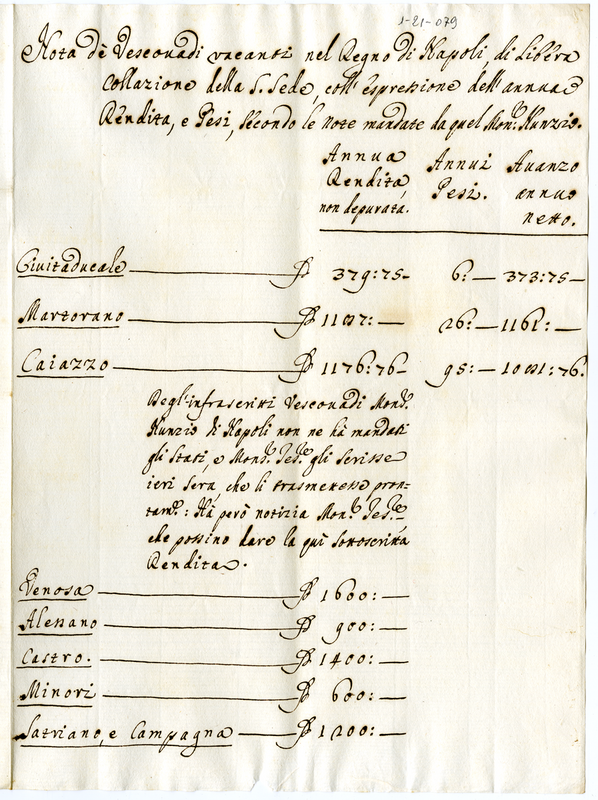 1-21-079
Nota dè Vescouadi vacanti nel Regno di Napoli, di Libera
collazione della S. Sede, coll'espressione dell'annua
Rendita, e Pesi, secondo le note mandate da quel Mons.r Nunzio.
Annua Rendita, non depurata. Annui Pesi. Auanzo annuo netto.
Ciuitaducale — 379:75— 6:— 373:75—
Martorano — 1187:— 26:— 1161:—
Caiazzo — 1176:76— 95:— 1081:76.
Degl'infrascritti Vescouadi Mons.r
Nunzio di Napoli non ne hà mandati
gli stati, e Mons.r Seg.rio gli scrisse
ieri sera, che li trasmettesse pron-
tam.e: Hà però notizia Mons.r Seg.rio
che possino dare la quì sottoscritta
Rendita.
Venosa — 1600:—
Alessano — 900:—
Castro. — 1400:—
Minori — 600:—
Satriano, e Campagna — 1200:—